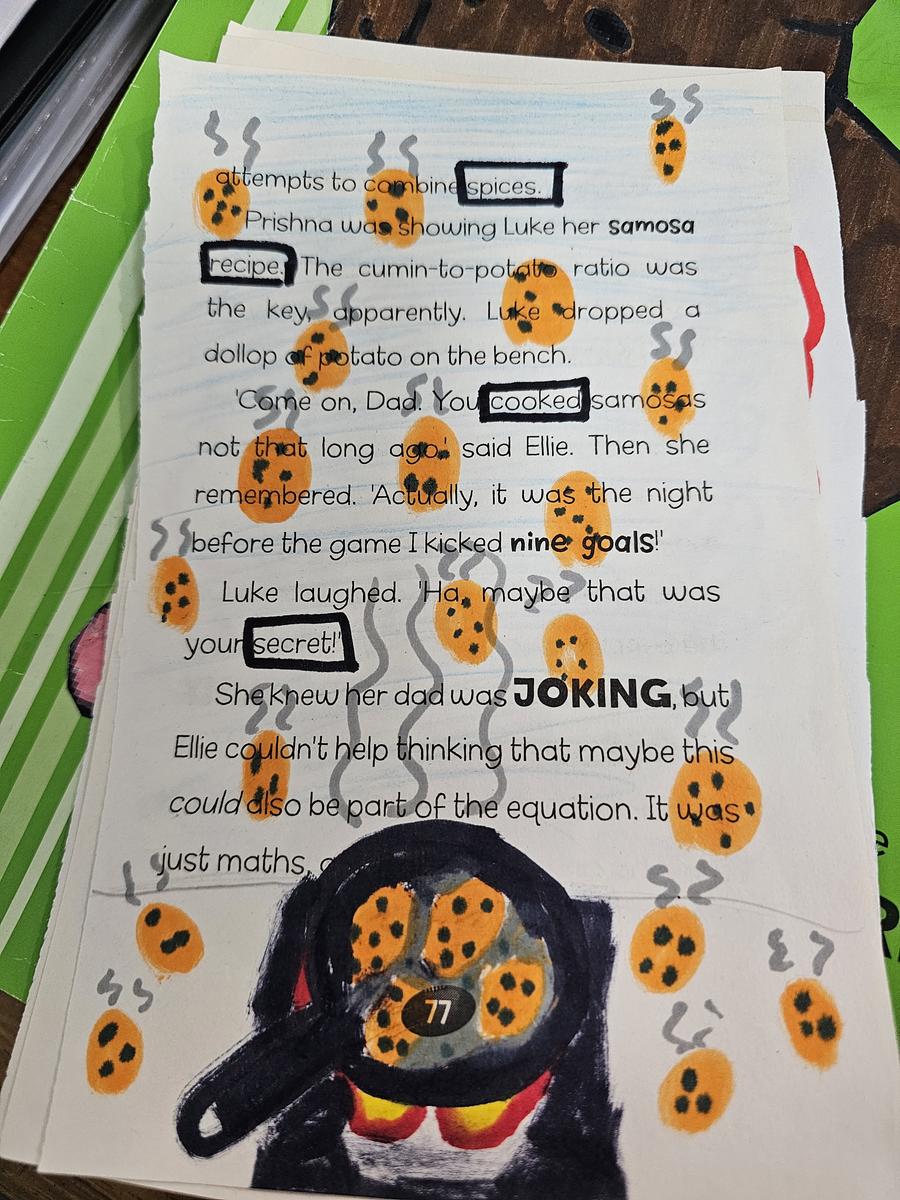 attempts to combine spices.
Prishna was showing Luke her samosa
recipe. The cumin-to-potato ratio was
the key, apparently. Luke dropped a
dollop of potato on the bench.
'Come on, Dad. You cooked samosas
not that long ago,' said Ellie. Then she
remembered. 'Actually, it was the night
before the game I kicked nine goals!'
Luke laughed. 'Ha, maybe that was
your secret!'
She knew her dad was JOKING, but
Ellie couldn't help thinking that maybe this
could also be part of the equation. It was
just maths,
77